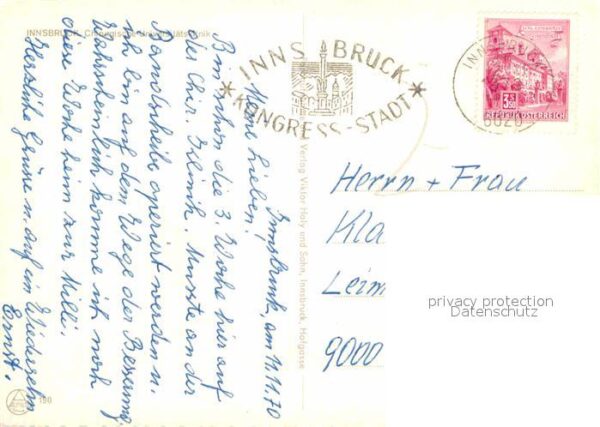 INNSBRUCK, Chirurgische Universitätsklinik
Innsbruck, am 11.11.70
Meine Lieben!
Bin schon die 3. Woche hier auf
der Chir. Klinik. Musste an der
Bandscheibe operiert werden u.
ich bin auf dem Wege der Besserung.
Wahrscheinlich komme ich noch
diese Woche heim zur Milli.
Herzliche Grüsse u. auf ein Wiedersehn
Ernst.
190
Verlag Viktor Holy und Sohn, Innsbruck, Hofgasse
* INNSBRUCK *
KONGRESS-STADT
INNSBRUCK
6020
3.50
REPUBLIK ÖSTERREICH
Herrn + Frau
Kla
Leim
9000
privacy protection
Datenschutz